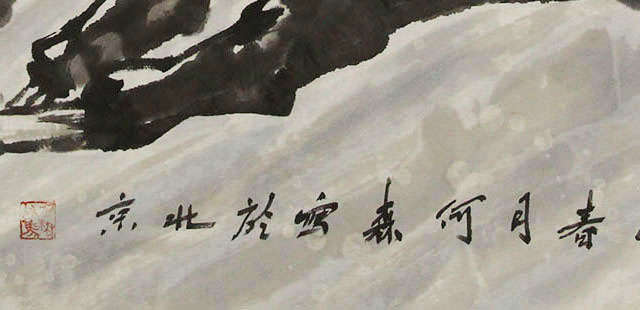 春月何森於北京